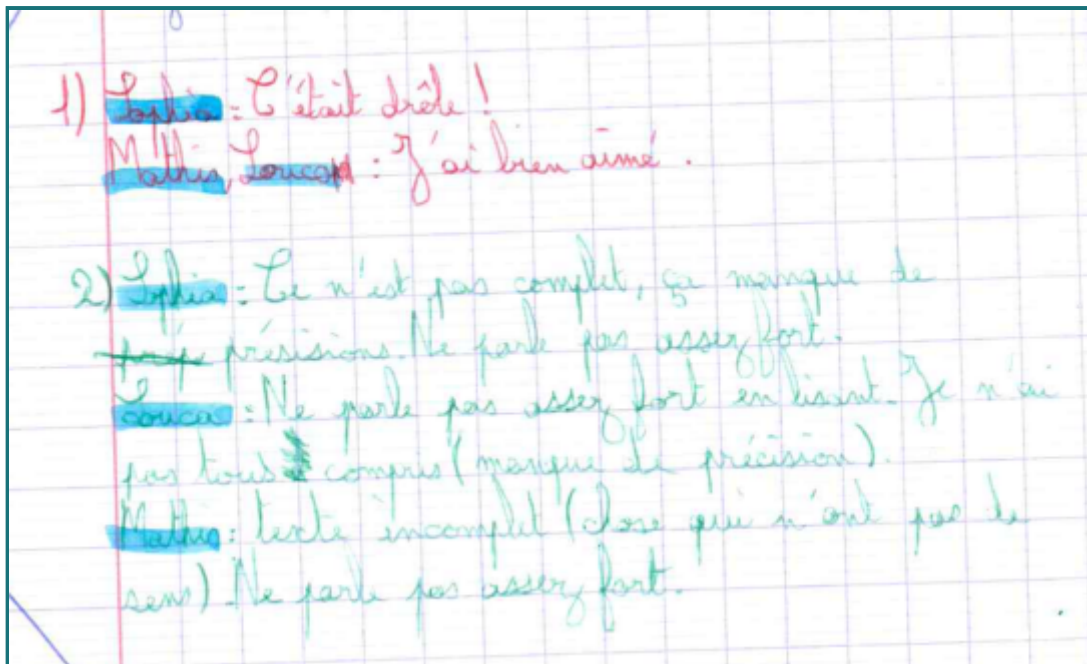 1) Sophia : C'était drôle !
Mathis, Louca : J'ai bien aimé.
2) Sophia : Ce n'est pas complet, ça manque de
présisions. Ne parle pas assez fort.
Louca : Ne parle pas assez fort en lisant. Je n'ai
pas tous compris (manque de précision).
Mathis : texte incomplet (chose qui n'ont pas de
sens). Ne parle pas assez fort.